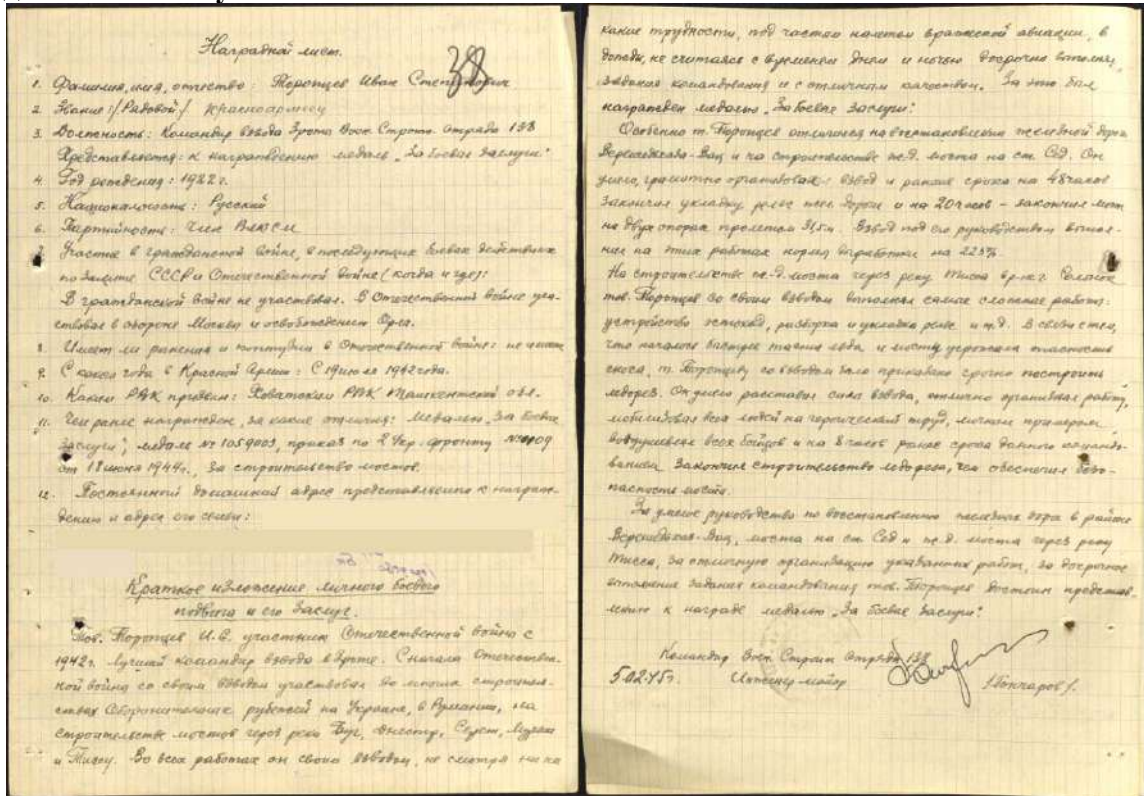 Наградной лист.
38
1. Фамилия, имя, отчество: Торопцев Иван Степанович
2. Звание: /Рядовой/ красноармеец
3. Должность: Командир взвода 3 роты Воен. Строит. отряда 138
Представляется: к награждению медаль „За боевые заслуги"
4. Год рождения: 1922 г.
5. Национальность: Русский
6. Партийность: Член ВЛКСМ
7. Участие в гражданской войне, в последующих боевых действиях
по защите СССР и Отечественной войне (когда и где):
В гражданской войне не участвовал. В Отечественной войне уча-
ствовал в обороне Москвы и освобождении Орла.
8. Имеет ли ранения и контузии в Отечественной войне: не имеет
9. С какого года в Красной Армии: С 19 июля 1942 года.
10. Каким РВК призван: РВК Ташкентской обл.
11. Чем ранее награжден, за какие отличия: Медалью „За боевые
заслуги", медаль № 1059003, приказ по 2 Укр. фронту
от 18 июня 1944 г., за строительство мостов.
12. Постоянный домашний адрес представляемого к награж-
дению и адрес его семьи:
Краткое изложение личного боевого
подвига и его заслуг.
Тов. Торопцев И.С. участник Отечественной войны с
1942 г. Лучший командир взвода в роте. С начала Отечествен-
ной войны со своим взводом участвовал во многих строитель-
ствах оборонительных рубежей на Украине, в Румынии, на
строительстве мостов через реки Буг, Днестр, Серет,
и Тиссу. Во всех работах он своим взводом, не смотря ни на
какие трудности, под частым налетом вражеской авиации, в
дожди, не считаясь с временем днем и ночью досрочно выполнял
задания командования и с отличным качеством. За это был
награжден медалью „За боевые заслуги".
Особенно т. Торопцев отличился на восстановлении железной дороги
Верешедьхаза-Вац и на строительстве ж.д. моста на ст. Сод. Он
умело, грамотно организовал взвод и раньше срока на 48 часов
закончил укладку рельс жел. дороги и на 20 часов – закончил мост
на двух опорах пролетом 31,5 м. Взвод под его руководством выпол-
нил на этих работах нормы выработки на 225%
На строительстве ж.д. моста через реку Тисса в р-не г. Сольнок
тов. Торопцев со своим взводом выполнял самые сложные работы:
устройство эстокад, разборка и укладка рельс и т.д. В связи с тем,
что началось быстрое таяние льда и мосту угрожала опасность
сноса, т. Торопцеву со взводом было приказано срочно построить
ледорез. Он умело расставил силы взвода, отлично организовал работу,
мобилизовал всех людей на героический труд, личным примером
воодушевлял всех бойцов и на 8 часов ранее срока данного командо-
ванием закончил строительство ледореза, чем обеспечил безо-
пасность моста.
За умелое руководство по восстановлению железных дорог в районе
Верешедьхаза-Вац, моста на ст. Сод и ж.д. моста через реку
Тисса, за отличную организацию указанных работ, за досрочное
выполнение задания командования тов. Торопцев достоин представ-
лению к награде медалью „За боевые заслуги".
Командир Воен. Строит. Отряда 138
5.02.45 г. Инженер-майор /Гончаров/.